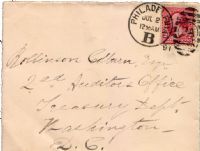 PHILADE
JUL 2
12 30 AM
B
91
Rollinson Colburn, Esq.
2nd Auditor's Office
Treasury Dept.
Washington
D. C.